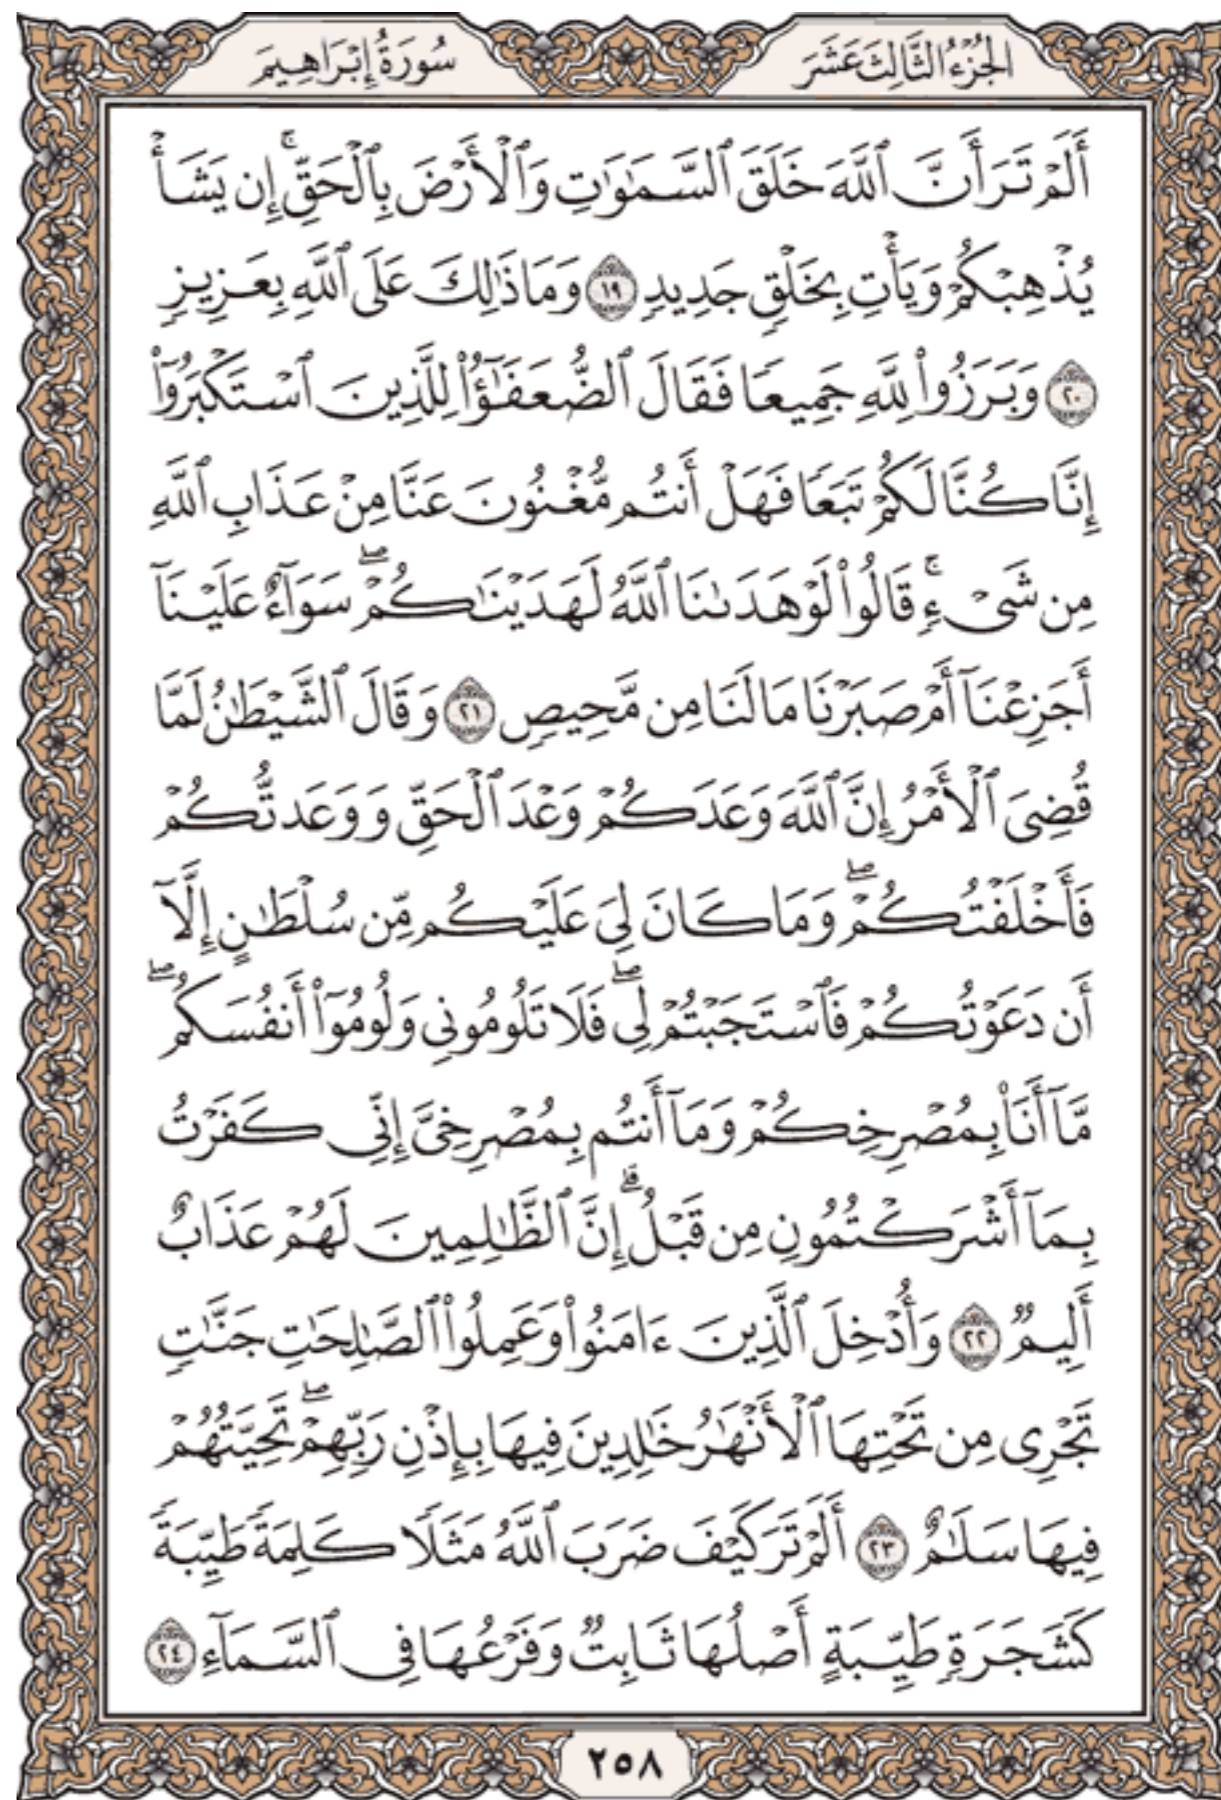 الجزء الثالث عشر
سورة إبراهيم
أَلَمْ تَرَ أَنَّ ٱللَّهَ خَلَقَ ٱلسَّمَـٰوَٰتِ وَٱلْأَرْضَ بِٱلْحَقِّ ۚ إِن يَشَأْ
يُذْهِبْكُمْ وَيَأْتِ بِخَلْقٍ جَدِيدٍ ١٩ وَمَا ذَٰلِكَ عَلَى ٱللَّهِ بِعَزِيزٍ
٢٠ وَبَرَزُوا۟ لِلَّهِ جَمِيعًا فَقَالَ ٱلضُّعَفَـٰٓؤُا۟ لِلَّذِينَ ٱسْتَكْبَرُوٓا۟
إِنَّا كُنَّا لَكُمْ تَبَعًا فَهَلْ أَنتُم مُّغْنُونَ عَنَّا مِنْ عَذَابِ ٱللَّهِ
مِن شَىْءٍ ۚ قَالُوا۟ لَوْ هَدَىٰنَا ٱللَّهُ لَهَدَيْنَـٰكُمْ ۖ سَوَآءٌ عَلَيْنَآ
أَجَزِعْنَآ أَمْ صَبَرْنَا مَا لَنَا مِن مَّحِيصٍ ٢١ وَقَالَ ٱلشَّيْطَـٰنُ لَمَّا
قُضِىَ ٱلْأَمْرُ إِنَّ ٱللَّهَ وَعَدَكُمْ وَعْدَ ٱلْحَقِّ وَوَعَدتُّكُمْ
فَأَخْلَفْتُكُمْ ۖ وَمَا كَانَ لِىَ عَلَيْكُم مِّن سُلْطَـٰنٍ إِلَّآ
أَن دَعَوْتُكُمْ فَٱسْتَجَبْتُمْ لِى ۖ فَلَا تَلُومُونِى وَلُومُوٓا۟ أَنفُسَكُم ۖ
مَّآ أَنَا۠ بِمُصْرِخِكُمْ وَمَآ أَنتُم بِمُصْرِخِىَّ إِنِّى كَفَرْتُ
بِمَآ أَشْرَكْتُمُونِ مِن قَبْلُ ۗ إِنَّ ٱلظَّـٰلِمِينَ لَهُمْ عَذَابٌ
أَلِيمٌ ٢٢ وَأُدْخِلَ ٱلَّذِينَ ءَامَنُوا۟ وَعَمِلُوا۟ ٱلصَّـٰلِحَـٰتِ جَنَّـٰتٍ
تَجْرِى مِن تَحْتِهَا ٱلْأَنْهَـٰرُ خَـٰلِدِينَ فِيهَا بِإِذْنِ رَبِّهِمْ ۖ تَحِيَّتُهُمْ
فِيهَا سَلَـٰمٌ ٢٣ أَلَمْ تَرَ كَيْفَ ضَرَبَ ٱللَّهُ مَثَلًا كَلِمَةً طَيِّبَةً
كَشَجَرَةٍ طَيِّبَةٍ أَصْلُهَا ثَابِتٌ وَفَرْعُهَا فِى ٱلسَّمَآءِ ٢٤
٢٥٨